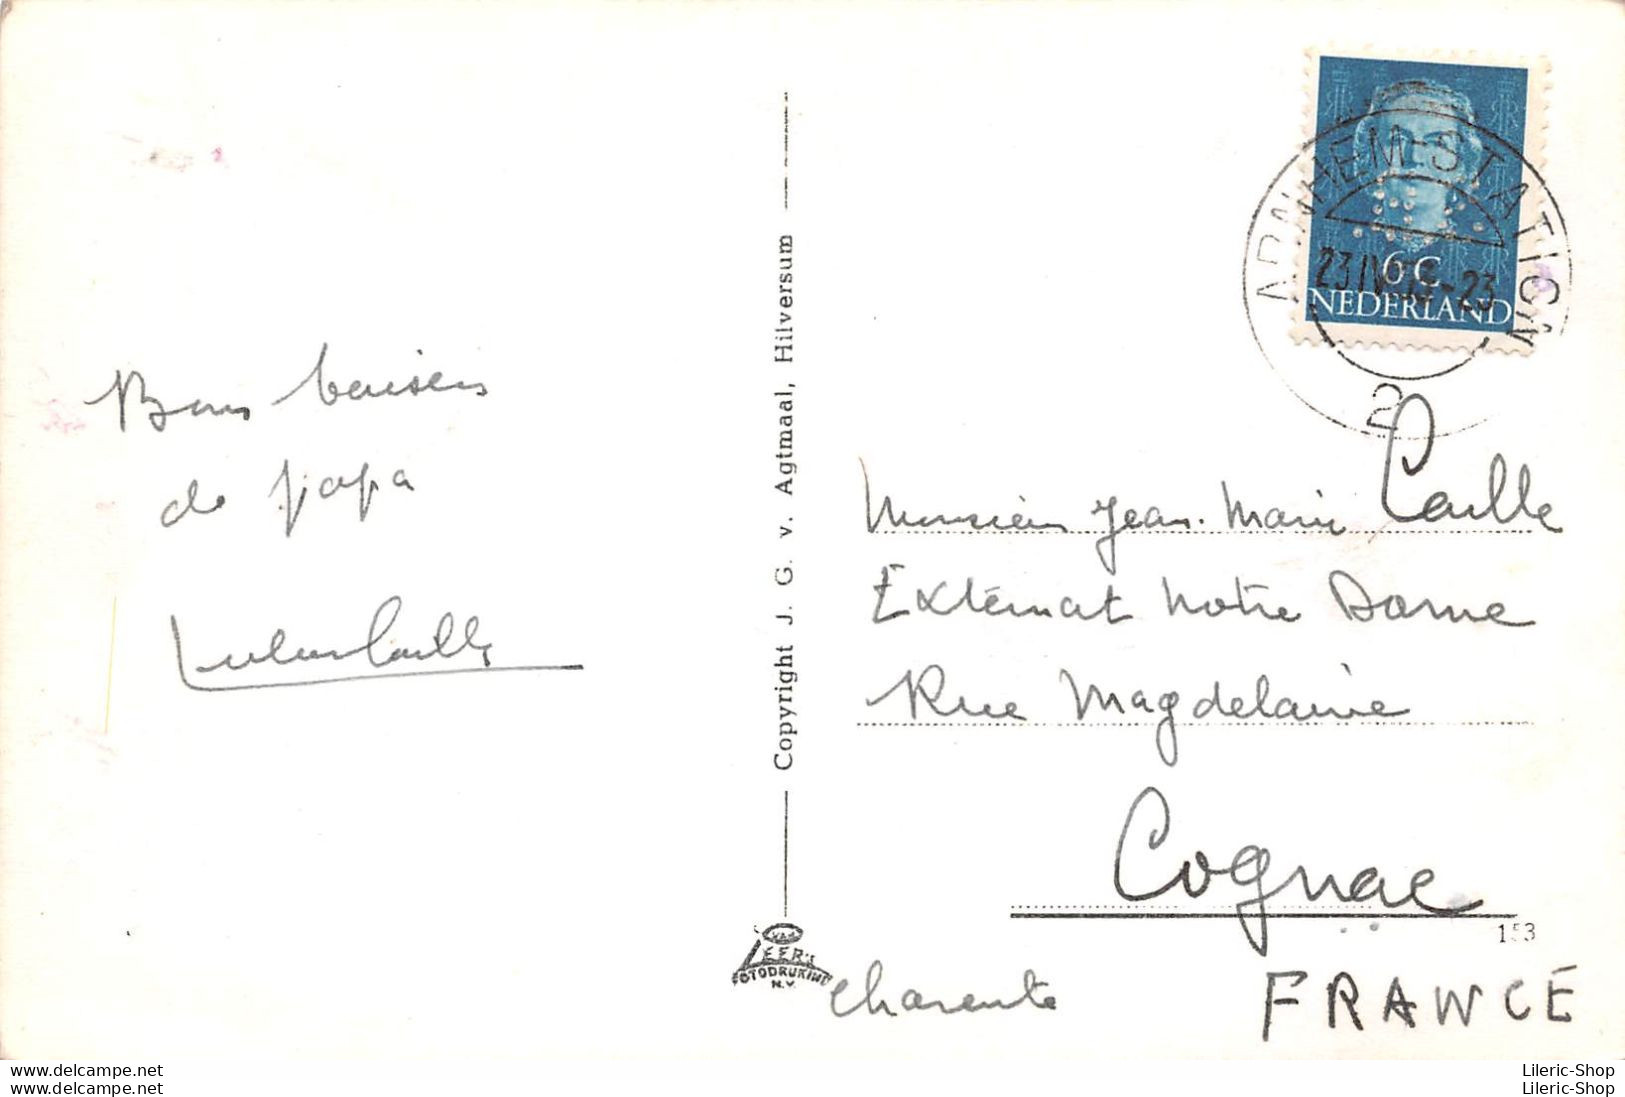 Bons baisers
de papa
Copyright J. G. v. Agtmaal, Hilversum
VAN
LEER'S
FOTODRUKIND
N.V.
ARNHEM-STATION
23 IV 53-23
2
6 C
NEDERLAND
Monsieur Jean-Marie Caille
Externat Notre Dame
Rue Magdelaine
Cognac
153
Charente
FRANCE
www.delcampe.net
www.delcampe.net
Lileric-Shop
Lileric-Shop